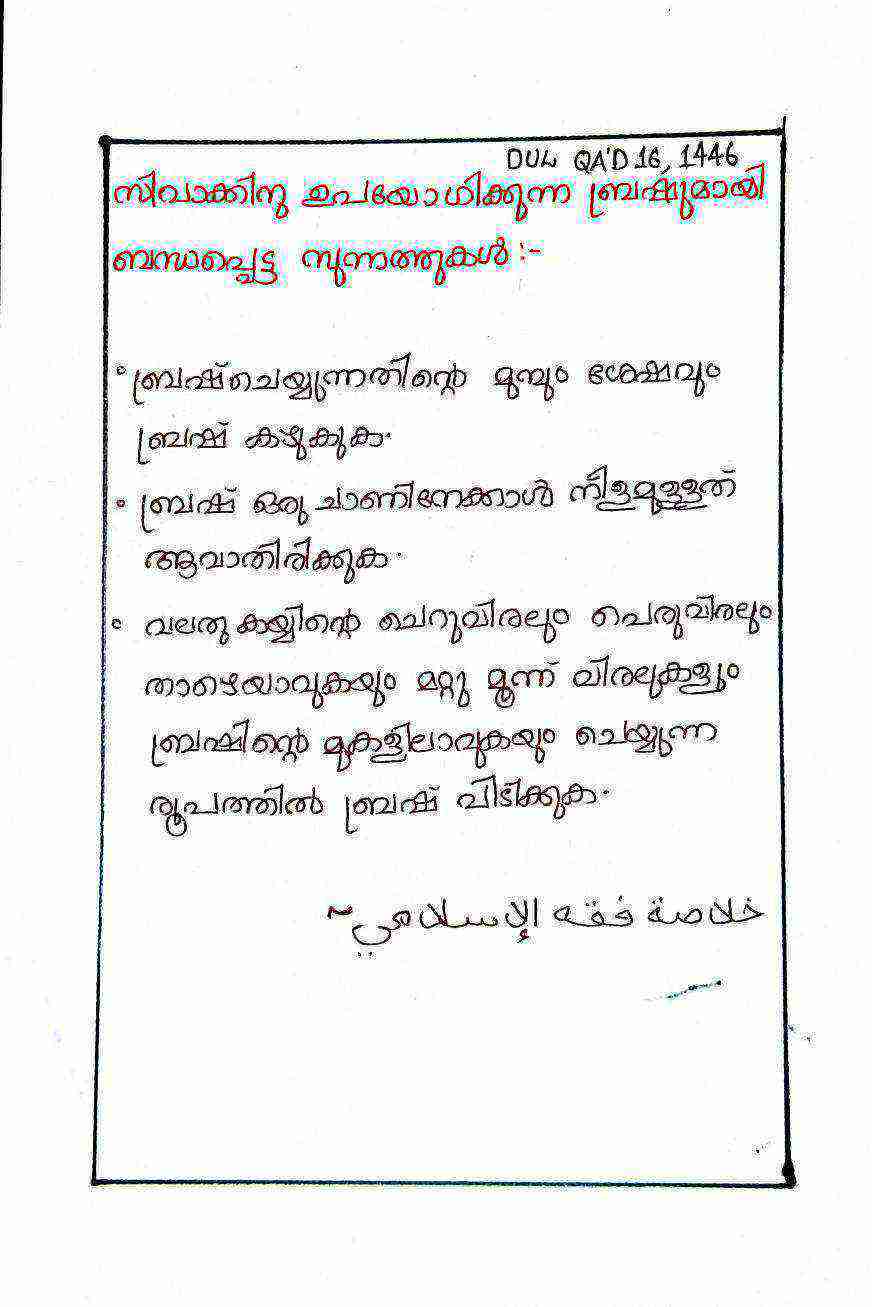 DUL QA'D 16, 1446
സിവാക്കിനു ഉപയോഗിക്കുന്ന ബ്രഷുമായി
ബന്ധപ്പെട്ട സുന്നത്തുകൾ :-
° ബ്രഷ് ചെയ്യുന്നതിന്റെ മുമ്പും ശേഷവും
ബ്രഷ് കഴുകുക.
° ബ്രഷ് ഒരു ചാണിനേക്കാൾ നീളമുള്ളത്
ആവാതിരിക്കുക.
° വലതു കയ്യിന്റെ ചെറുവിരലും പെരുവിരലും
താഴെയാവുകയും മറ്റു മൂന്ന് വിരലുകളും
ബ്രഷിന്റെ മുകളിലാവുകയും ചെയ്യുന്ന
രൂപത്തിൽ ബ്രഷ് പിടിക്കുക.
خلاصة فقه الإسلامي ~